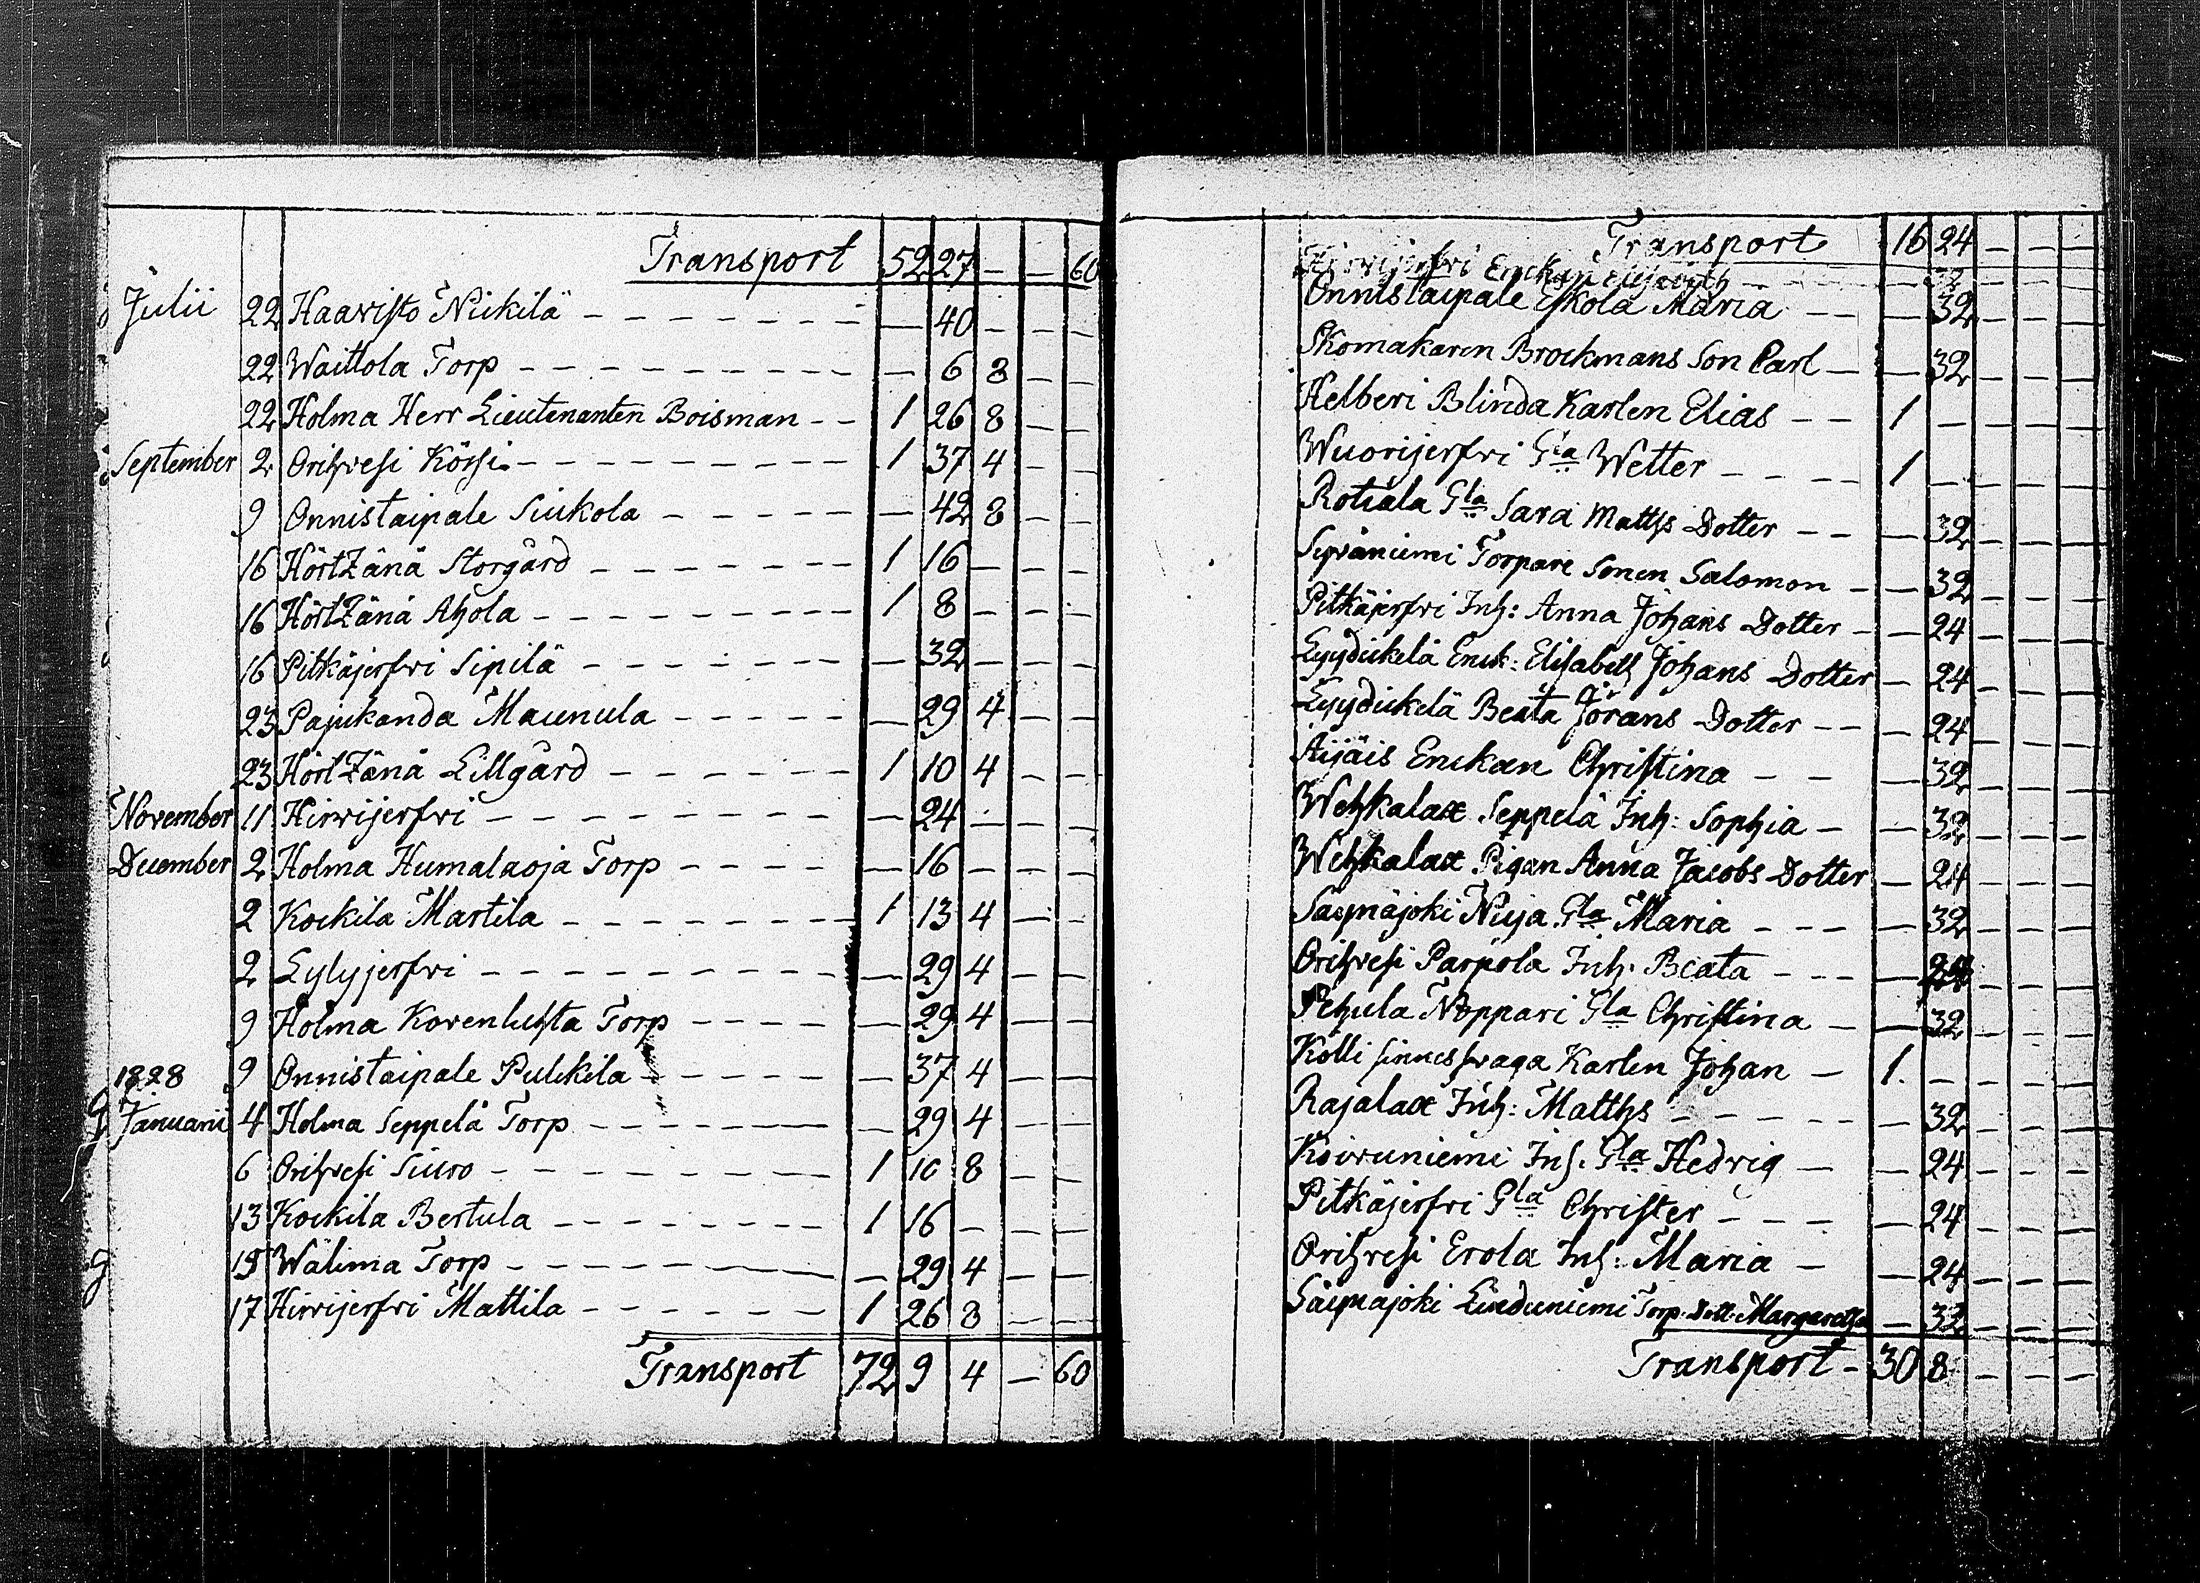 Transport 52 27 — — 60
Julii 22 Haavisto Niikilä — 40 — — —
22 Waittola Torp — 6 8 — —
22 Holma Herr Lieutenanten Boisman 1 26 8 — —
September 2 Orihvesi Körsi 1 37 4 — —
9 Onnistaipale Siukola — 42 8 — —
16 Hörtzänä Storgård 1 16 — — —
16 Hörtzänä Ahola 1 8 — — —
16 Pitkäjerfvi Sipilä — 32 — — —
23 Pajukanda Maunula — 29 4 — —
23 Hörtzänä Lillgård 1 10 4 — —
November 11 Hirvijerfvi — 24 — — —
December 2 Holma Humalaoja Torp — 16 — — —
2 Kockila Martila 1 13 4 — —
2 Lylyjerfvi — 29 4 — —
9 Holma Korenluhta Torp — 29 4 — —
1828 9 Onnistaipale Pulckila — 37 4 — —
Januarii 4 Holma Seppelä Torp — 29 4 — —
6 Orihvesi Siuro 1 10 8 — —
13 Kockila Bertula 1 16 — — —
13 Wälima Torp — 29 4 — —
17 Hirvijerfvi Mattila 1 26 8 — —
Transport 72 9 4 — 60
Transport 16 24 — — —
Hirvijerfvi Enckan Elisabeth — 32 — — —
Onnistaipale Eskola Maria — 32 — — —
Skomakaren Brockmans Son Carl — 32 — — —
Helberi Blinda Karlen Elias 1 — — — —
Wuorijerfvi Gla Wetter 1 — — — —
Rotsala Gla Sara Matths Dotter — 32 — — —
Syväniemi Torpare Sonen Salomon — 32 — — —
Pitkäjerfvi Inh: Anna Johans Dotter — 24 — — —
Lyydickelä Enck: Elisabeth Johans Dotter — 24 — — —
Lyydickelä Beata Jörans Dotter — 24 — — —
Äijäis Enckan Christina — 32 — — —
Wehkalax Seppelä Inh: Sophia — 32 — — —
Wehkalax Pigan Anna Jacobs Dotter — 24 — — —
Säynäjoki Nuja Gla Maria — 32 — — —
Orihvesi Parpola Inh. Beata — 24 — — —
Pehula Noppari Gla Christina — 32 — — —
Kölli sinnessvaga Karlen Johan 1 — — — —
Rajalax Inh: Matths — 32 — — —
Koivuniemi Inh. Gla Hedvig — 24 — — —
Pitkäjerfvi Gla Christer — 24 — — —
Orihvesi Erola Inh: Maria — 24 — — —
Säynäjoki Linduniemi Torp. Dott. Margaretha — 32 — — —
Transport 30 8 — — —